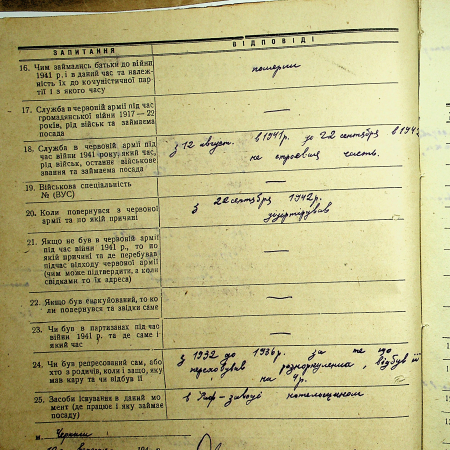 ЗАПИТАННЯ
ВІДПОВІДІ
16. Чим займались батьки до війни
1941 р. і в даний час та належ-
ність їх до комуністичної пар-
тії і в якого часу
померли
17. Служба в червоній армії під час
громадянської війни 1917—22
років, рід військ та займаєма
посада
—
18. Служба в червоній армії під
час війни 1941 року, який час,
рід військ, останнє військове
звання та займаєма посада
з 12 август. 1941р. до 22 сентября в 1942
не строевая часть.
19. Військова спеціальність
№ (ВУС)
—
20. Коли повернувся з червоної
армії та по якій причині
з 22 сентября 1942г.
дезертирував
21. Якщо не був в червоній армії
під час війни 1941 р., то по
якій причині та де перебував
підчас відходу червоної армії
(чим може підтвердити, а коли
свідками то їх адреса)
—
22. Якщо був евакуйований, то ко-
ли повернувся та звідки саме
—
23. Чи був в партизанах під час
війни 1941 р. та де саме і
який час
—
24. Чи був репресований сам, або
хто з родичів, коли і защо, яку
мав кару та чи відбув її
з 1932 до 1936р. за те що
переховував, відбув її
на 4 р.
25. Засоби існування в даний мо-
мент (де працює і яку займає
посаду)
в заводі
м.